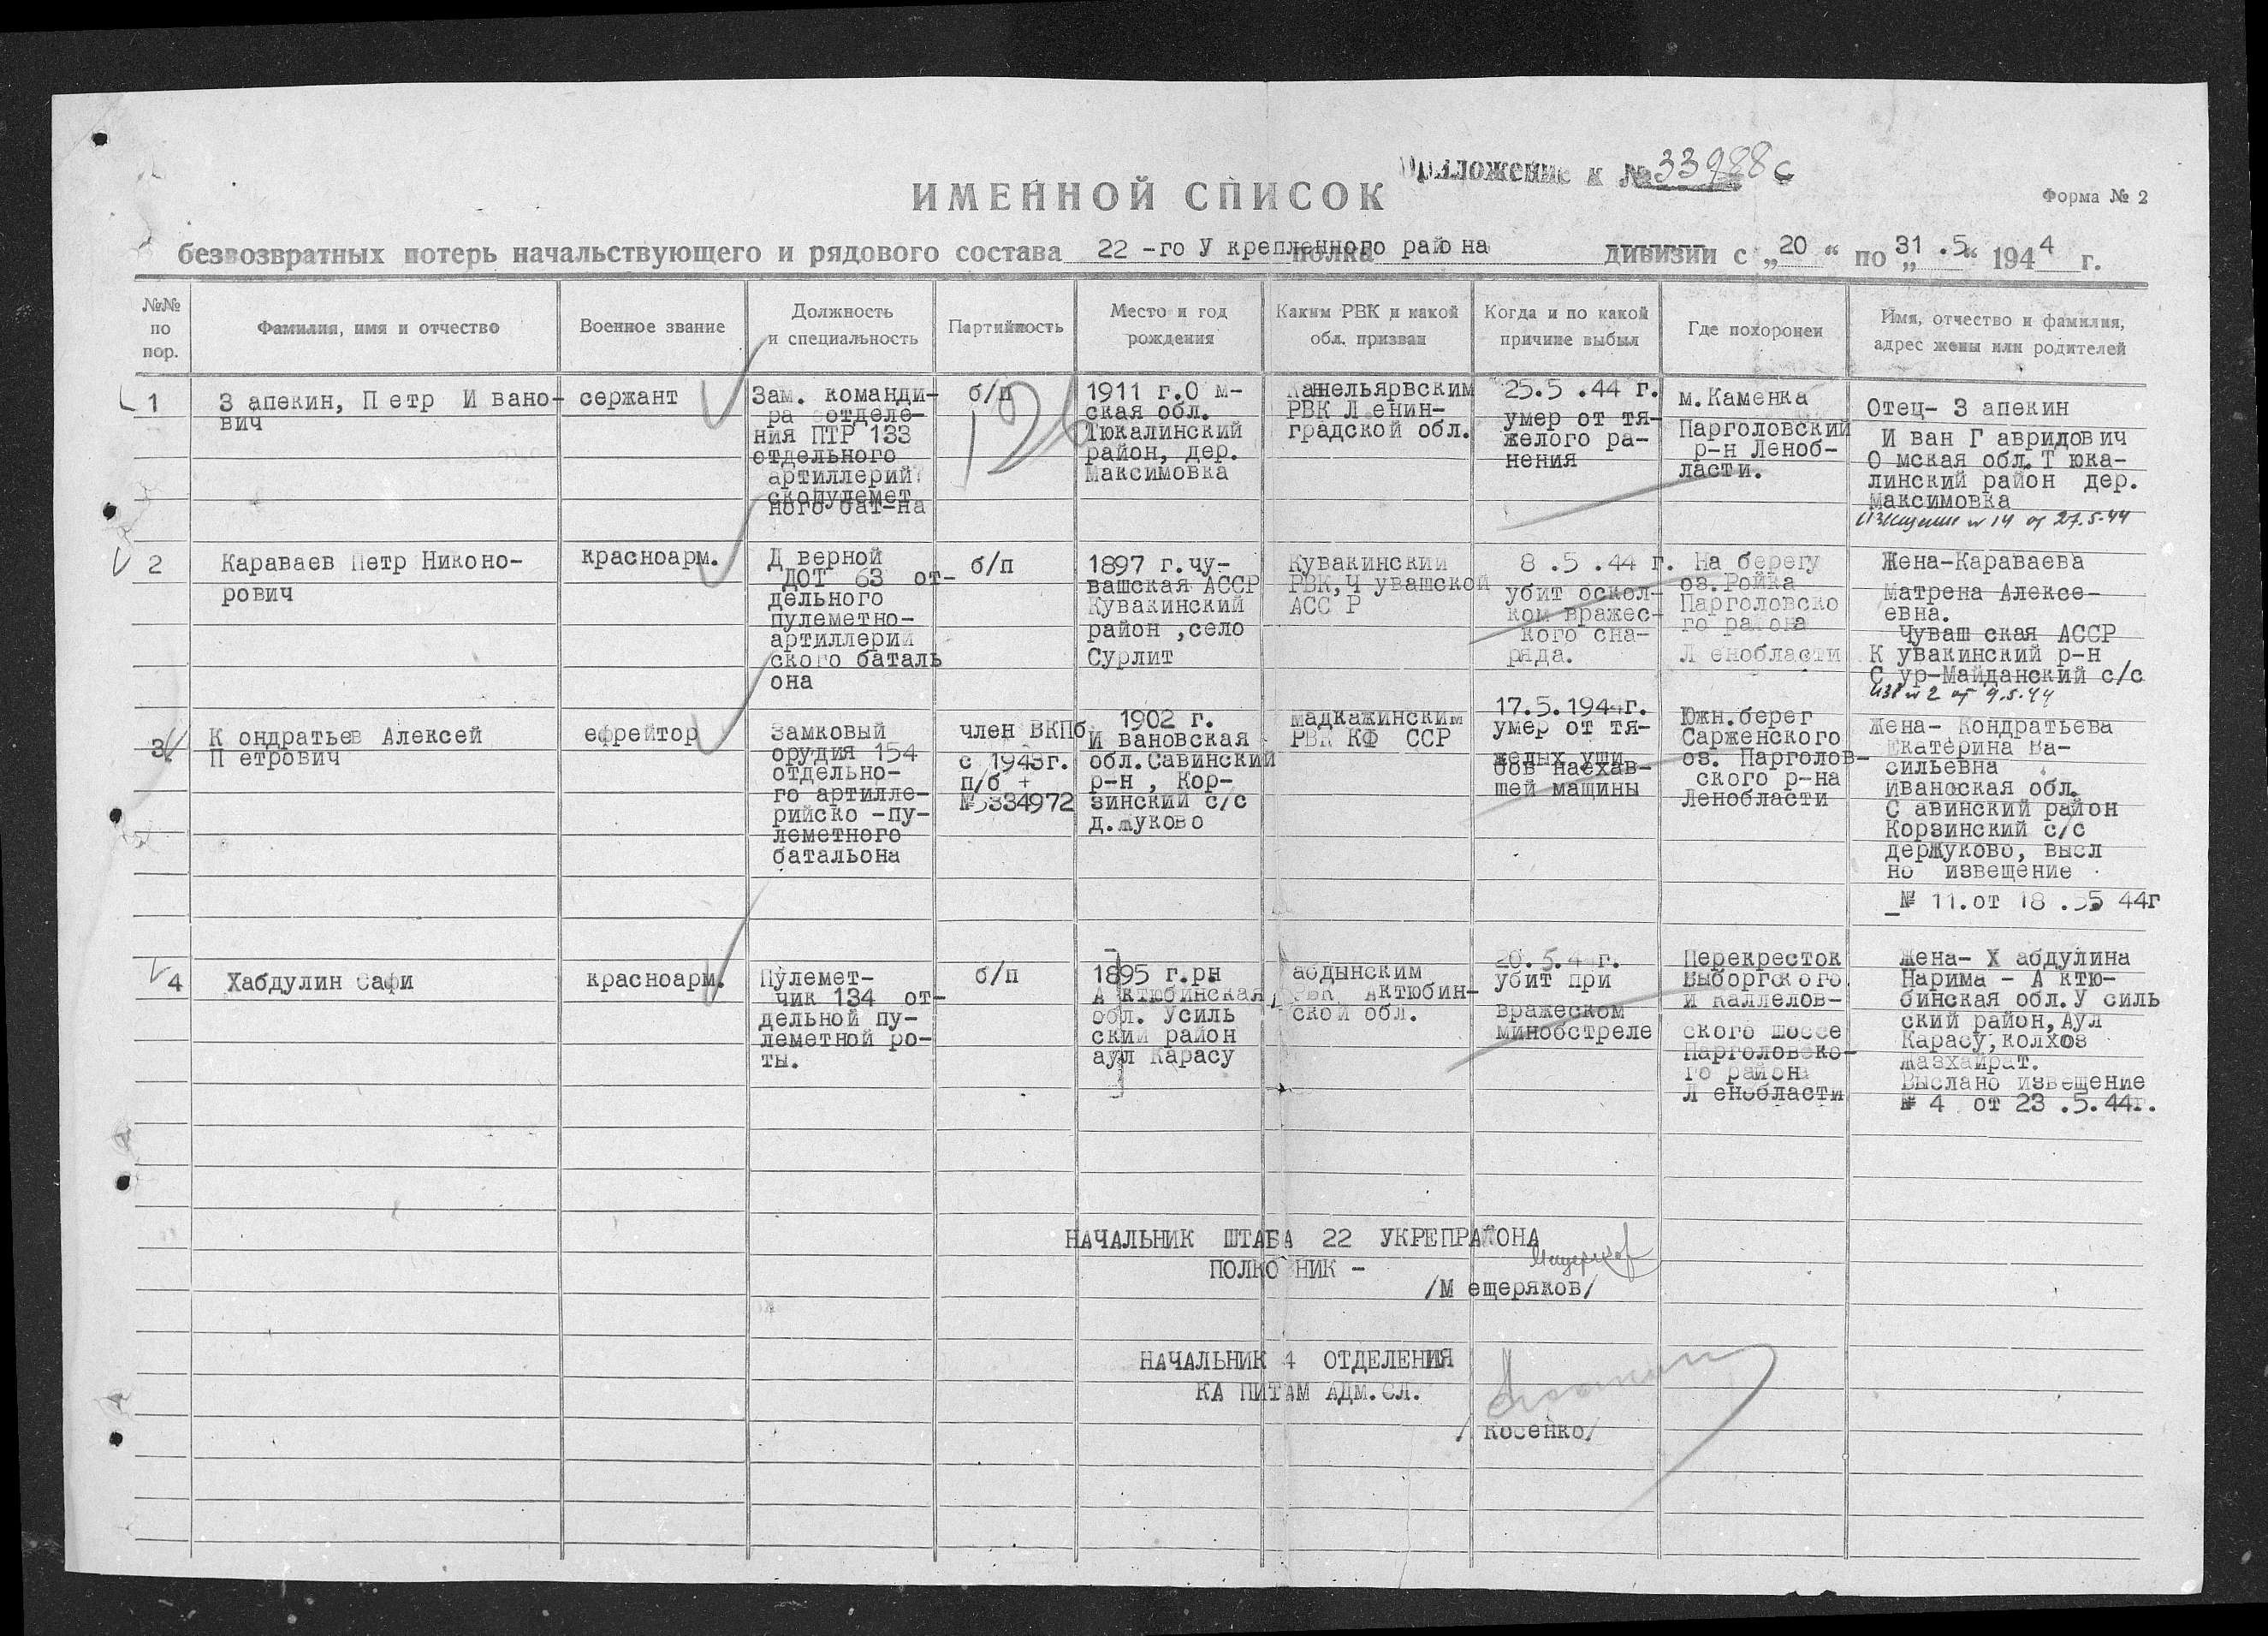 Приложение к № 33988с
ИМЕННОЙ СПИСОК
Форма № 2
безвозвратных потерь начальствующего и рядового состава 22-го Укрепленного района полка дивизии с „20“ по „31.5“ 1944 г.
№№ по пор.
Фамилия, имя и отчество
Военное звание
Должность и специальность
Партийность
Место и год рождения
Каким РВК и какой обл. призван
Когда и по какой причине выбыл
Где похоронен
Имя, отчество и фамилия, адрес жены или родителей
1
Запекин, Петр Ивано-
вич
сержант
Зам. команди-
ра отделе-
ния ПТР 133
отдельного
артиллерий
скопулемет
ного бат-на
б/п
126
1911 г.Ом-
ская обл.
Тюкалинский
район, дер.
Максимовка
Каннельярвским
РВК Ленин-
градской обл.
25.5.44 г.
умер от тя-
желого ра-
нения
м.Каменка
Парголовский
р-н Леноб-
ласти.
Отец- Запекин
Иван Гавридович
Омская обл.Тюка-
линский район дер.
Максимовка
Извещение № 14 от 27.5.44
2
Караваев Петр Николо-
рович
красноарм.
Дверной
ДОТ 63 от-
дельного
пулеметно-
артиллерий
ского баталь
она
б/п
1897 г.чу-
вашская АССР
Кувакинский
район ,село
Сурлит
Кувакинский
РВК,Чувашской
АССР
8.5.44 г.
убит оскол-
ком вражес-
кого сна-
ряда.
На берегу
оз.Ройка
Парголовско
го района
Ленобласти
Жена-Караваева
Матрена Алексе-
евна.
Чувашская АССР
Кувакинский р-н
Сур-Майданский с/с
изв № 2 от 9.5.44
3
Кондратьев Алексей
Петрович
ефрейтор
Замковый
орудия 154
отдельно-
го артилле-
рийско-пу-
леметного
батальона
член ВКПб
с 1943г.
п/б +
№5334972
1902 г.
Ивановская
обл.Савинский
р-н , Кор-
зинский с/с
д.Жуково
мадкажинским
РВК КФ ССР
17.5.1944г.
умер от тя-
желых уши
бов наехав-
шей машины
Южн.берег
Сарженского
оз. Парголов-
ского р-на
Ленобласти
Жена- Кондратьева
Екатерина Ва-
сильевна
Ивановская обл.
Савинский район
Корзинский с/с
держуково, высл
но извещение
№ 11.от 18.55 44г
4
Хабдулин Сафи
красноарм.
Пулемет-
чик 134 от-
дельной пу-
леметной ро-
ты.
б/п
1895 г.рн
Актюбинская
обл. Усиль
ский район
аул Карасу
абдынским
РВК Актюбин-
ской обл.
20.5.44г.
убит при
вражеском
минобстреле
Перекресток
Выборгского
и Каллелов-
ского шоссе
Парголовско-
го района
Ленобласти
Жена- Хабдулина
Нарима - Актю-
бинская обл.Усиль
ский район,Аул
Карасу,колхоз
Жазхайрат.
Выслано извещение
№ 4 от 23.5.44г.
НАЧАЛЬНИК ШТАБА 22 УКРЕПРАЙОНА
ПОЛКОВНИК -
Мещеряков
/Мещеряков/
НАЧАЛЬНИК 4 ОТДЕЛЕНИЯ
КАПИТАМ АДМ.СЛ.
/Косенко/